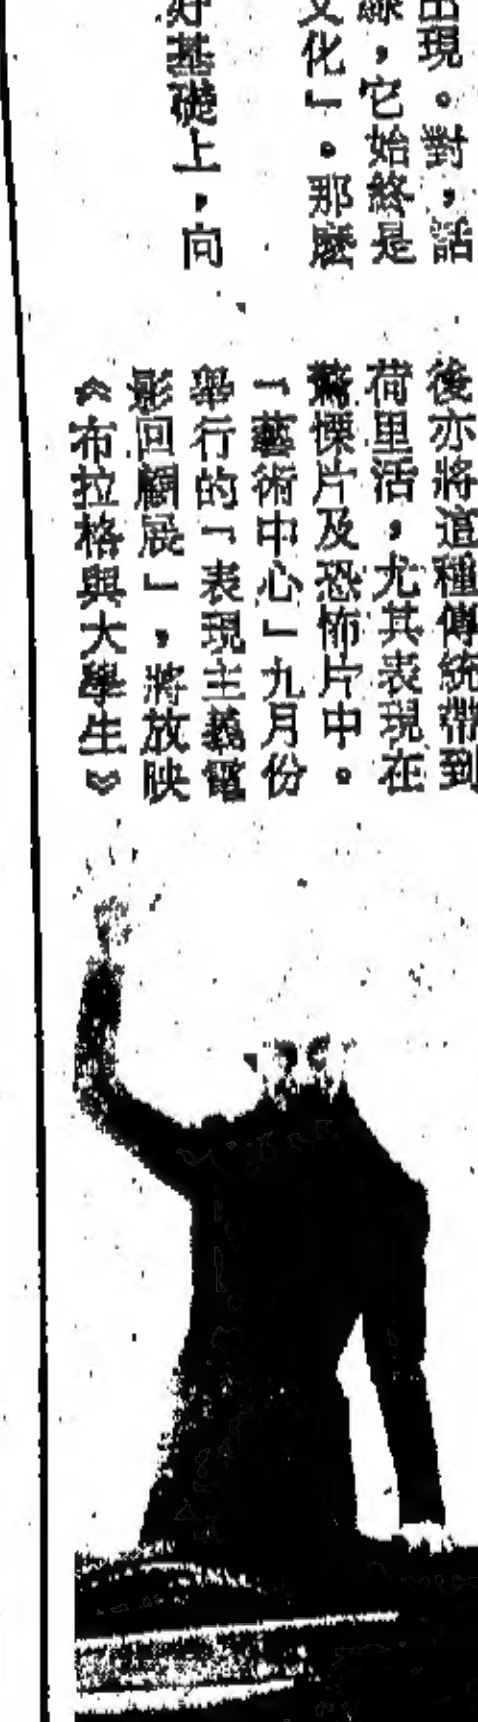 出現。對,話
線,它始終是
文化」。那麼
好基礎上,向
後亦將這種傳統帶到
荷里活,尤其表現在
驚慄片及恐怖片中。
「藝術中心」九月份
舉行的「表現主義電
影回顧展」,將放映
《布拉格與大學生》